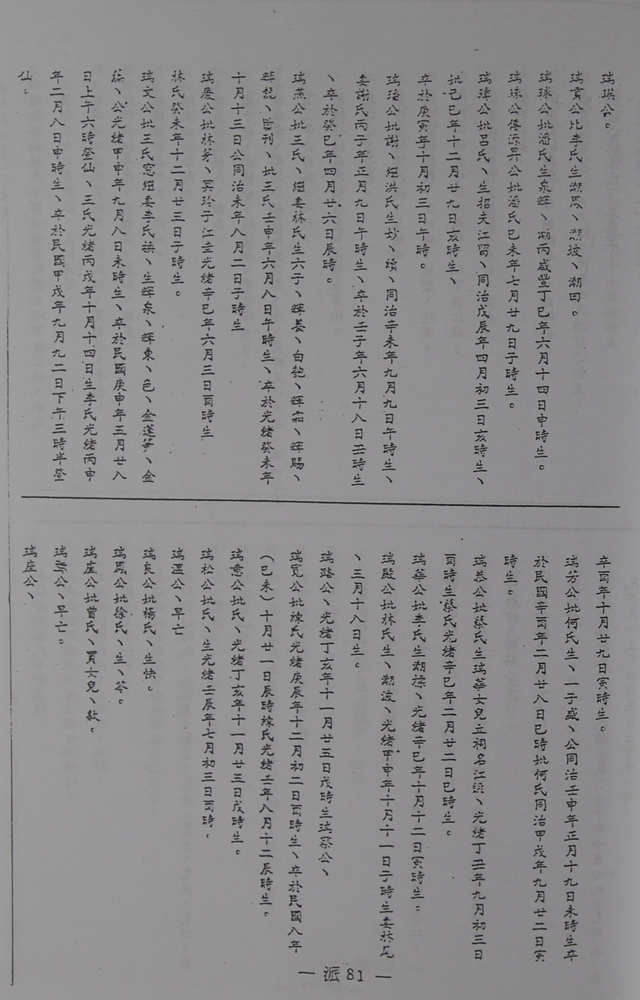 瑞瑛公。
瑞賁公妣李氏生湖馬、湖坡、湖田。
瑞球公妣潘氏生泉輝、湖丙咸豐丁巳年六月十四日申時生。
瑞珠公傳派昇公妣潘氏己未年七月廿九日子時生。
瑞璋公妣呂氏、生招夫江留、同治戊辰年四月初三日亥時生、
妣己巳年十二月廿九日亥時生、
卒於庚寅年十月初三日午時。
瑞治公妣謝、繼洪氏生妙、續、同治辛未年九月九日午時生、
妻謝氏丙子年正月九日午時生、卒於壬子年六月十八日丑時生
、卒於癸巳年四月廿六日辰時。
瑞燕公妣王氏、繼妻林氏生六子、輝養、白、輝霜、輝賜、
輝、刊、妣王氏壬申年六月八日午時生、卒於光緒癸未年
十月十三日公同治未年八月二日子時生
瑞慶公妣林芳、冥玲子江圭光緒辛巳年六月三日酉時生
林氏癸未年十二月廿三日子時生。
瑞文公妣王氏窓繼妻李氏、生輝泉、輝東、色、金蓮笋、金
、公光緒甲申年九月八日未時生、卒於民國庚申年五月廿八
日上午六時登仙、王氏光緒丙戌年十月十四日生李氏光緒丙申
年二月八日申時生、卒於民國甲戌年九月九二日下午三時半登
仙。
辛酉年十月廿九日寅時生。
瑞芳公妣何氏生、一子盛、公同治壬申年正月十九日未時生卒
於民國辛酉年二月廿八日巳時妣何氏同治甲戌年九月廿二日寅
時生。
瑞恭公妣蔡氏生瑞華女兒立祠名江、光緒丁丑年九月初三日
酉時生蔡氏光緒辛巳年二月廿二日巳時生。
瑞華公妣李氏生湖標、光緒辛巳年十月十二日寅時生。
瑞殿公妣林氏生、湖波、光緒甲申年十月十一日子時生妻林氏
、三月十八日生。
瑞路公、光緒丁亥年十一月廿五日戌時生瑞發公、
瑞寬公妣陳氏光緒庚辰年十二月初二日酉時生、卒於民國八年
(己未)十月廿一日辰時陳氏光緒壬年八月十二辰時生。
瑞意公妣氏、光緒丁亥年十一月廿三日戌時生。
瑞松公妣氏、生光緒壬辰年七月初三日酉時。
瑞溫公、早亡
瑞良公妣楊氏、生快。
瑞鳳公妣徐氏、生、苓。
瑞座公妣曾氏、買女兒、款。
瑞公、早亡。
瑞座公、
— 派81 —